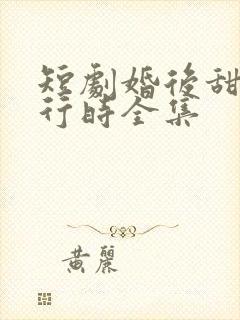 短劇婚後甜
行時全集
黃麗